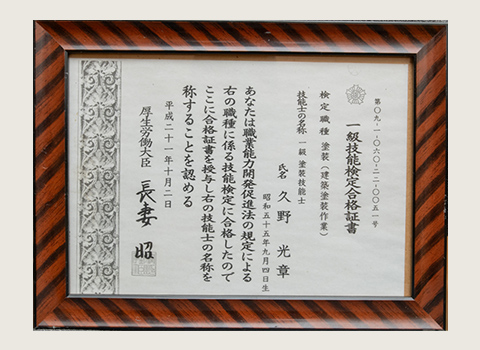 第〇九-一-〇六〇-二二-〇〇五一号
一級技能検定合格証書
検定職種 塗装(建築塗装作業)
技能士の名称 一級 塗装技能士
氏名 久野 光章
昭和五十五年九月四日生
あなたは職業能力開発促進法の規定による
右の職種に係る技能検定に合格したので
ここに合格証書を授与し右の技能士の名称を
称することを認める
平成二十一年十月二日
厚生労働大臣 長妻 昭